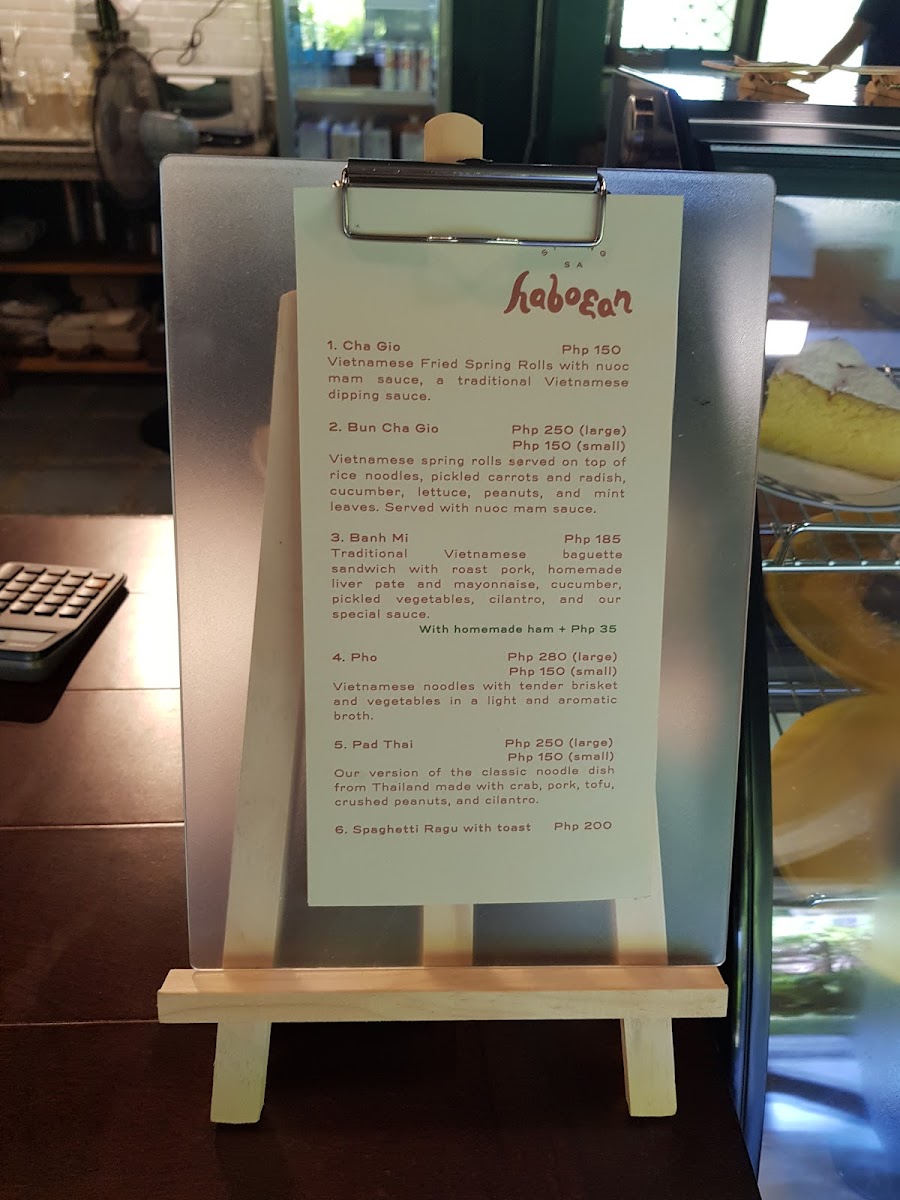 SA
haboean
1. Cha Gio Php 150
Vietnamese Fried Spring Rolls with nuoc
mam sauce, a traditional Vietnamese
dipping sauce.
2. Bun Cha Gio Php 250 (large)
Php 150 (small)
Vietnamese spring rolls served on top of
rice noodles, pickled carrots and radish,
cucumber, lettuce, peanuts, and mint
leaves. Served with nuoc mam sauce.
3. Banh Mi Php 185
Traditional Vietnamese baguette
sandwich with roast pork, homemade
liver pate and mayonnaise, cucumber,
pickled vegetables, cilantro, and our
special sauce.
With homemade ham + Php 35
4. Pho Php 280 (large)
Php 150 (small)
Vietnamese noodles with tender brisket
and vegetables in a light and aromatic
broth.
5. Pad Thai Php 250 (large)
Php 150 (small)
Our version of the classic noodle dish
from Thailand made with crab, pork, tofu,
crushed peanuts, and cilantro.
6. Spaghetti Ragu with toast Php 200